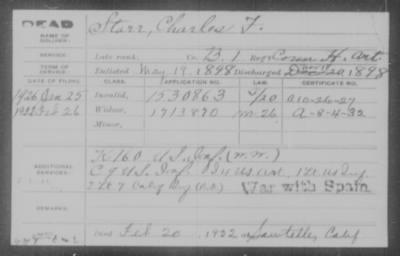 DEAD
NAME OF SOLDIER:
Starr, Charles F.
SERVICE:
Late rank, Co. B. 1 Reg't Conn H. Art
TERM OF SERVICE:
Enlisted May 19, 1898 Discharged 20, 1898
DATE OF FILING. CLASS. APPLICATION NO. LAW. CERTIFICATE NO.
1926 Jan 25 Invalid, 1530863 6/20 a10-26-27
1932 Feb 26 Widow, 1713870 M-26 A-8-4-32
Minor,
ADDITIONAL SERVICES:
K 160 U.S. Inf. (W.W.)
C 9 U.S. Inf. U.S. Art.
7 Calif
War with Spain
REMARKS:
Died Feb 20, 1932 Sawtelle, Calif